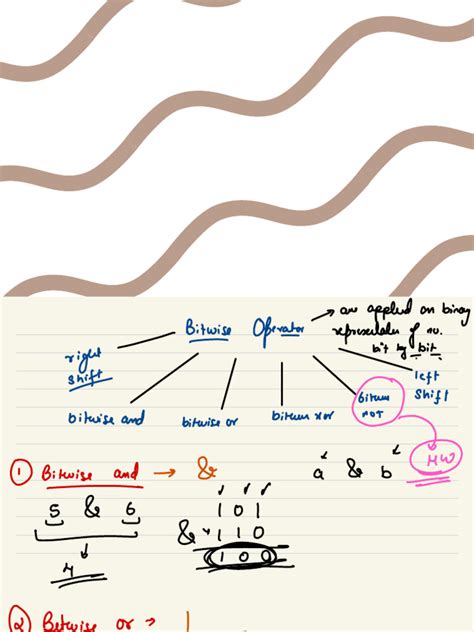 Bitwise Operator → are applied on binary
representation of no.
bit by bit.
right
shift
bitwise and
bitwise or
bitwise xor
bitwise
NOT
left
shift
HW
① Bitwise and → &
a & b
5 & 6
4
1 0 1
& 1 1 0
1 0 0
② Bitwise or → |